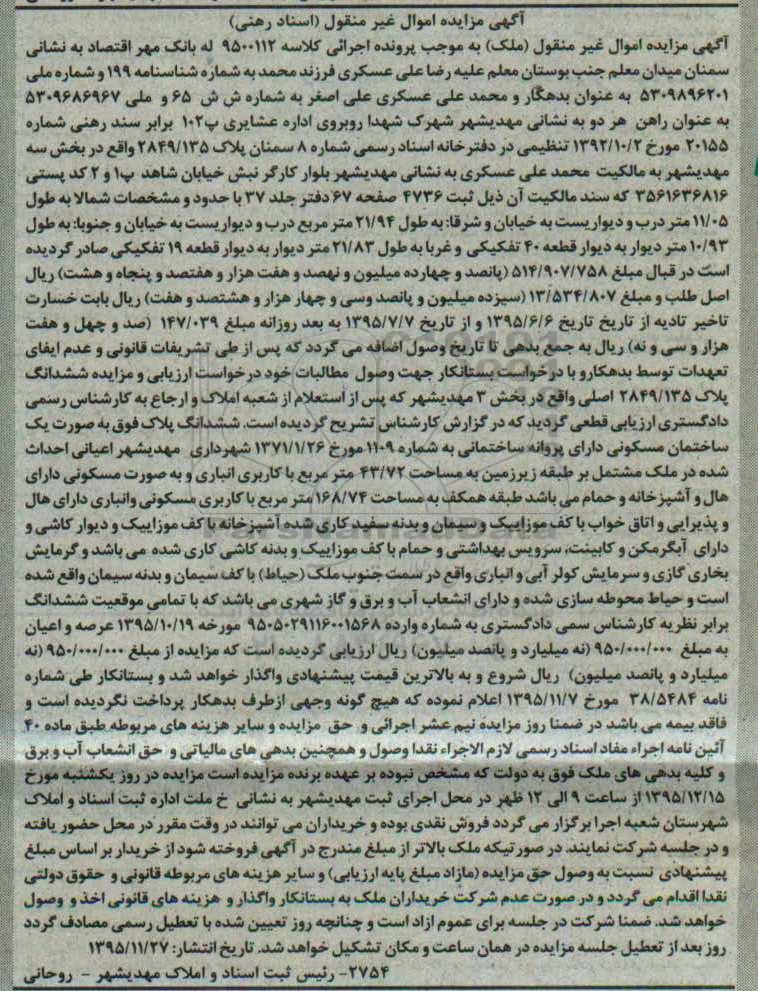 آگهی مزایده اموال غیر منقول (اسناد رهنی)
آگهی مزایده اموال غیر منقول (ملک) به موجب پرونده اجرائی کلاسه ۹۵۰۰۱۱۲ له بانک مهر اقتصاد به نشانی
سمنان میدان معلم جنب بوستان معلم علیه رضا علی عسکری فرزند محمد به شماره شناسنامه ۱۹۹ و شماره ملی
۵۳۰۹۸۹۶۲۰۱ به عنوان بدهگار و محمد علی عسکری علی اصغر به شماره ش ش ۶۵ و ملی ۵۳۰۹۶۸۶۹۶۷
به عنوان راهن هر دو به نشانی مهدیشهر شهرک شهدا روبروی اداره عشایری پ۱۰۲ برابر سند رهنی شماره
۲۰۱۵۵ مورخ ۱۳۹۲/۱۰/۲ تنظیمی در دفترخانه اسناد رسمی شماره ۸ سمنان پلاک ۲۸۴۹/۱۳۵ واقع در بخش سه
مهدیشهر به مالکیت محمد علی عسکری به نشانی مهدیشهر بلوار کارگر نبش خیابان شاهد پ۱ و ۲ کد پستی
۳۵۶۱۶۳۶۸۱۶ که سند مالکیت آن ذیل ثبت ۴۷۳۶ صفحه ۶۷ دفتر جلد ۳۷ با حدود و مشخصات شمالا به طول
۱۱/۰۵ متر درب و دیواریست به خیابان و شرقا: به طول ۲۱/۹۴ متر مربع درب و دیواریست به خیابان و جنوبا: به طول
۱۰/۹۳ متر دیوار به دیوار قطعه ۴۰ تفکیکی و غربا به طول ۲۱/۸۳ متر دیوار به دیوار قطعه ۱۹ تفکیکی صادر گردیده
است در قبال مبلغ ۵۱۴/۹۰۷/۷۵۸ (پانصد و چهارده میلیون و نهصد و هفت هزار و هفتصد و پنجاه و هشت) ریال
اصل طلب و مبلغ ۱۳/۵۳۴/۸۰۷ (سیزده میلیون و پانصد وسی و چهار هزار و هشتصد و هفت) ریال بابت خسارت
تاخیر تادیه از تاریخ تاریخ ۱۳۹۵/۶/۶ و از تاریخ ۱۳۹۵/۷/۷ به بعد روزانه مبلغ ۱۴۷/۰۳۹ (صد و چهل و هفت
هزار و سی و نه) ریال به جمع بدهی تا تاریخ وصول اضافه می گردد که پس از طی تشریفات قانونی و عدم ایفای
تعهدات توسط بدهکارو با درخواست بستانکار جهت وصول مطالبات خود درخواست ارزیابی و مزایده ششدانگ
پلاک ۲۸۴۹/۱۳۵ اصلی واقع در بخش ۳ مهدیشهر که پس از استعلام از شعبه املاک و ارجاع به کارشناس رسمی
دادگستری ارزیابی قطعی گردید که در گزارش کارشناس تشریح گردیده است. ششدانگ پلاک فوق به صورت یک
ساختمان مسکونی دارای پروانه ساختمانی به شماره ۱۱۰۹ مورخ ۱۳۷۱/۱/۲۶ شهرداری مهدیشهر اعیانی احداث
شده در ملک مشتمل بر طبقه زیرزمین به مساحت ۴۳/۷۲ متر مربع با کاربری انباری و به صورت مسکونی دارای
هال و آشپزخانه و حمام می باشد طبقه همکف به مساحت ۱۶۸/۷۴ متر مربع با کاربری مسکونی وانباری دارای هال
و پذیرایی و اتاق خواب با کف موزاییک و سیمان و بدنه سفید کاری شده آشپزخانه با کف موزاییک و دیوار کاشی و
دارای آبگرمکن و کابینت، سرویس بهداشتی و حمام با کف موزاییک و بدنه کاشی کاری شده می باشد و گرمایش
بخاری گازی و سرمایش کولر آبی و انباری واقع در سمت جنوب ملک (حیاط) با کف سیمان و بدنه سیمان واقع شده
است و حیاط محوطه سازی شده و دارای انشعاب آب و برق و گاز شهری می باشد که با تمامی موقعیت ششدانگ
برابر نظریه کارشناس سمی دادگستری به شماره وارده ۹۵۰۵۰۲۹۱۱۶۰۰۱۵۶۸ مورخه ۱۳۹۵/۱۰/۱۹ عرصه و اعیان
به مبلغ ۹۵۰/۰۰۰/۰۰۰ (نه میلیارد و پانصد میلیون) ریال ارزیابی گردیده است که مزایده از مبلغ ۹۵۰/۰۰۰/۰۰۰ (نه
میلیارد و پانصد میلیون) ریال شروع و به بالاترین قیمت پیشنهادی واگذار خواهد شد و بستانکار طی شماره
نامه ۳۸/۵۴۸۴ مورخ ۱۳۹۵/۱۱/۷ اعلام نموده که هیچ گونه وجهی ازطرف بدهکار پرداخت نگردیده است و
فاقد بیمه می باشد در ضمنا روز مزایده نیم عشر اجرائی و حق مزایده و سایر هزینه های مربوطه طبق ماده ۴۰
آئین نامه اجراء مفاد اسناد رسمی لازم الاجراء نقدا وصول و همچنین بدهی های مالیاتی و حق انشعاب آب و برق
و کلیه بدهی های ملک فوق به دولت که مشخص نبوده بر عهده برنده مزایده است مزایده در روز یکشنبه مورخ
۱۳۹۵/۱۲/۱۵ از ساعت ۹ الی ۱۲ ظهر در محل اجرای ثبت مهدیشهر به نشانی خ ملت اداره ثبت اسناد و املاک
شهرستان شعبه اجرا برگزار می گردد فروش نقدی بوده و خریداران می توانند در وقت مقرر در محل حضور یافته
و در جلسه شرکت نمایند. در صورتیکه ملک بالاتر از مبلغ مندرج در آگهی فروخته شود از خریدار بر اساس مبلغ
پیشنهادی نسبت به وصول حق مزایده (مازاد مبلغ پایه ارزیابی) و سایر هزینه های مربوطه قانونی و حقوق دولتی
نقدا اقدام می گردد و در صورت عدم شرکت خریداران ملک به بستانکار واگذار و هزینه های قانونی اخذ و وصول
خواهد شد. ضمنا شرکت در جلسه برای عموم ازاد است و چنانچه روز تعیین شده با تعطیل رسمی مصادف گردد
روز بعد از تعطیل جلسه مزایده در همان ساعت و مکان تشکیل خواهد شد. تاریخ انتشار: ۱۳۹۵/۱۱/۲۷
۲۷۵۴- رئیس ثبت اسناد و املاک مهدیشهر - روحانی